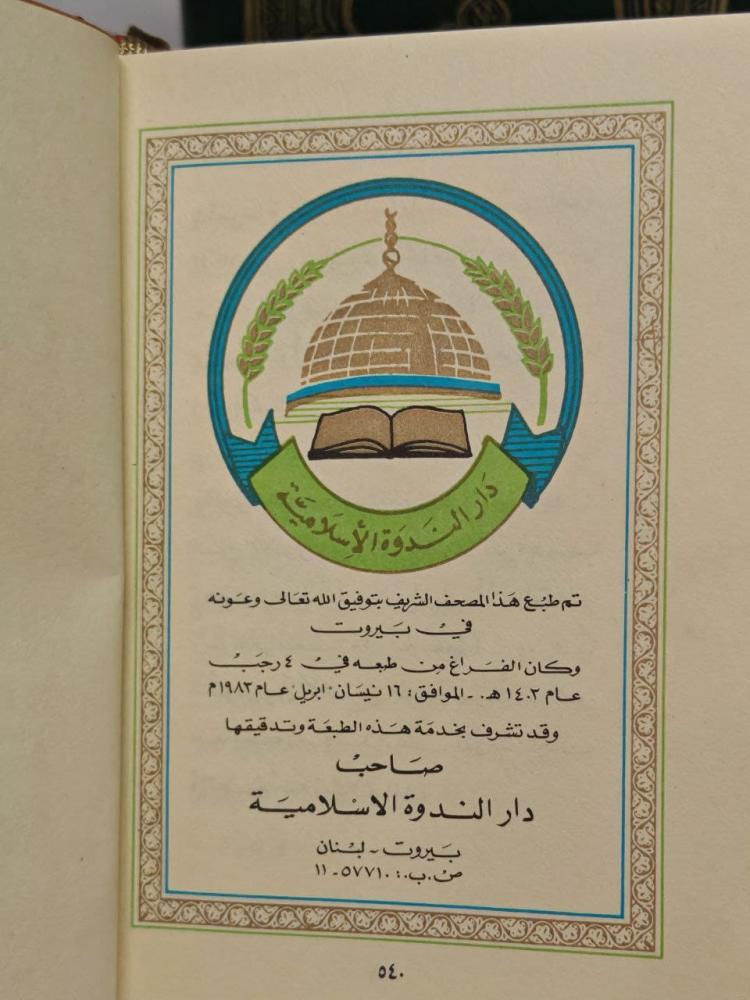 دَار النَدوَة الأِسلَاميَّة
تم طبُع هَذا المصحف الشريف بتوفيق الله تعَالى وعَونه
في بَيروت
وكان الفَراغ من طبعه في ٤ رجَبْ
عَام ١٤٠٣ هـ. - الموافق: ١٦ نيسَان "ابريل" عَام ١٩٨٣ م
وقد تشرف بخدمَة هَذه الطبعَة وتدقيقها
صَاحبْ
دار الندوة الاسْلاميَة
بَيروت - لبْنان
ص.ب.: ٥٧٧١٠ - ١١
٥٤٠